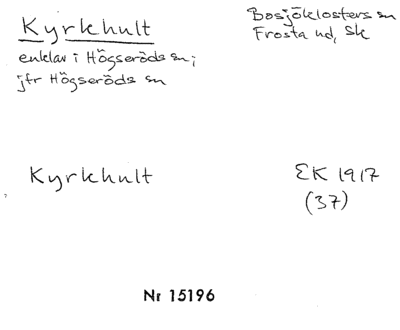 Kyrkhult
enklav i Högseröds sn;
jfr Högseröds sn
Bosjöklosters sn
Frosta hd, Sk
Kyrkhult
EK 1917
(37)
Nr 15196